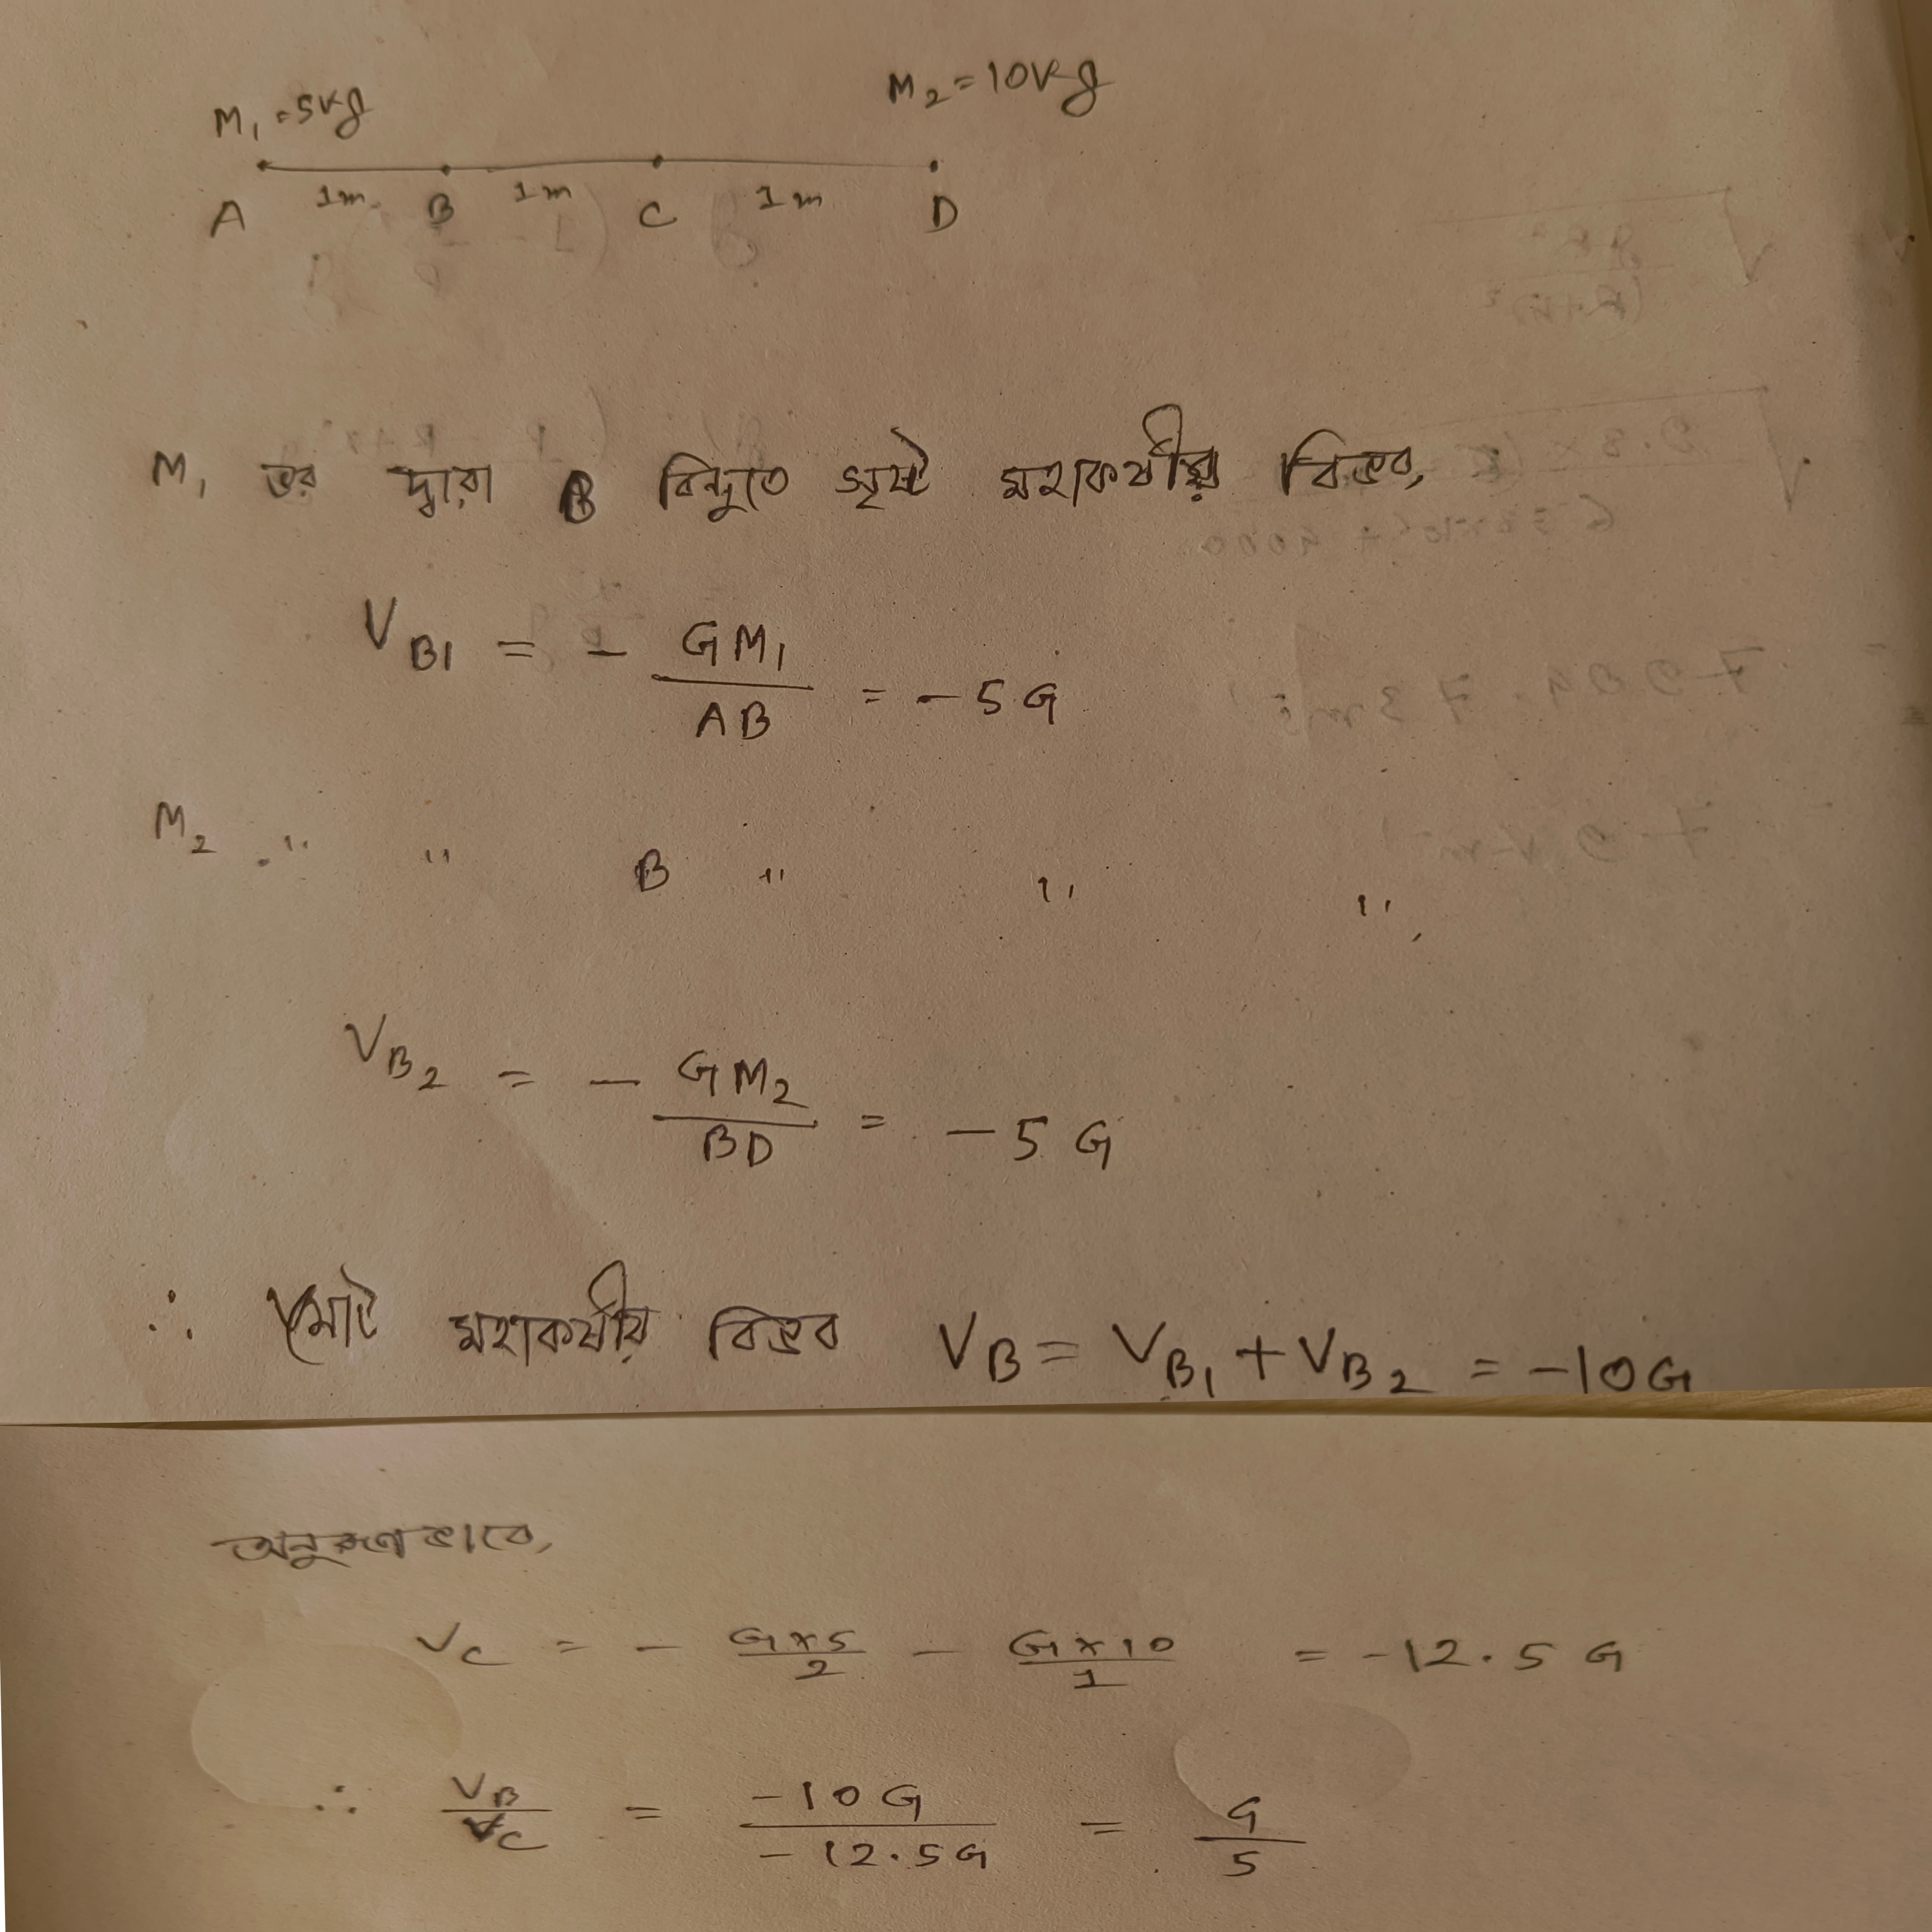 M₁ = 5kg M₂ = 10kg
1m 1m 1m
A B C D
M₁ ভর দ্বারা B বিন্দুতে সৃষ্ট মহাকর্ষীয় বিভব,
V_B1 = - GM₁/AB = -5G
M₂ " " B " " ",
V_B2 = - GM₂/BD = -5G
∴ মোট মহাকর্ষীয় বিভব V_B = V_B1 + V_B2 = -10G
অনুরূপভাবে,
V_C = - G×5/2 - G×10/1 = -12.5G
∴ V_B/V_C = -10G/-12.5G = G/5